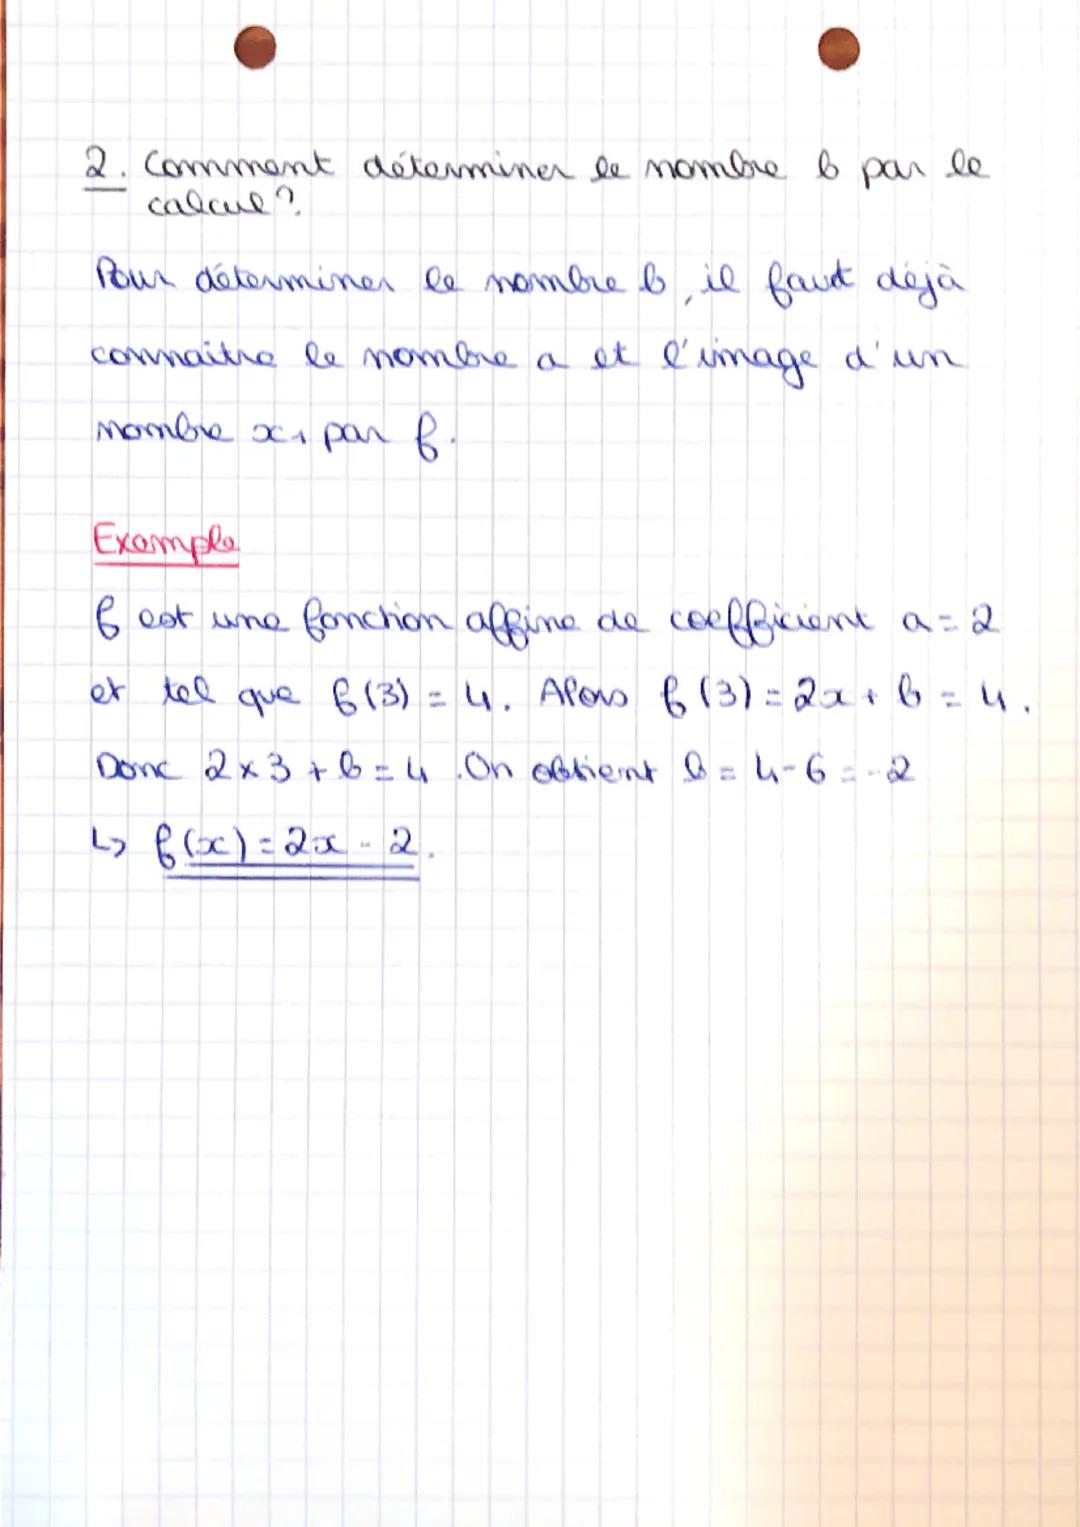 2. Comment déterminer le nombre b par le
calcul ?
Pour déterminer le nombre b, il faut déjà
connaitre le nombre a et l'image d'un
nombre x₁ par f.
Exemple
f est une fonction affine de coefficient a = 2
et tel que f(3) = 4. Alors f(3) = 2x + b = 4.
Donc 2 × 3 + b = 4. On obtient b = 4 - 6 = -2
↳ f(x) = 2x - 2.